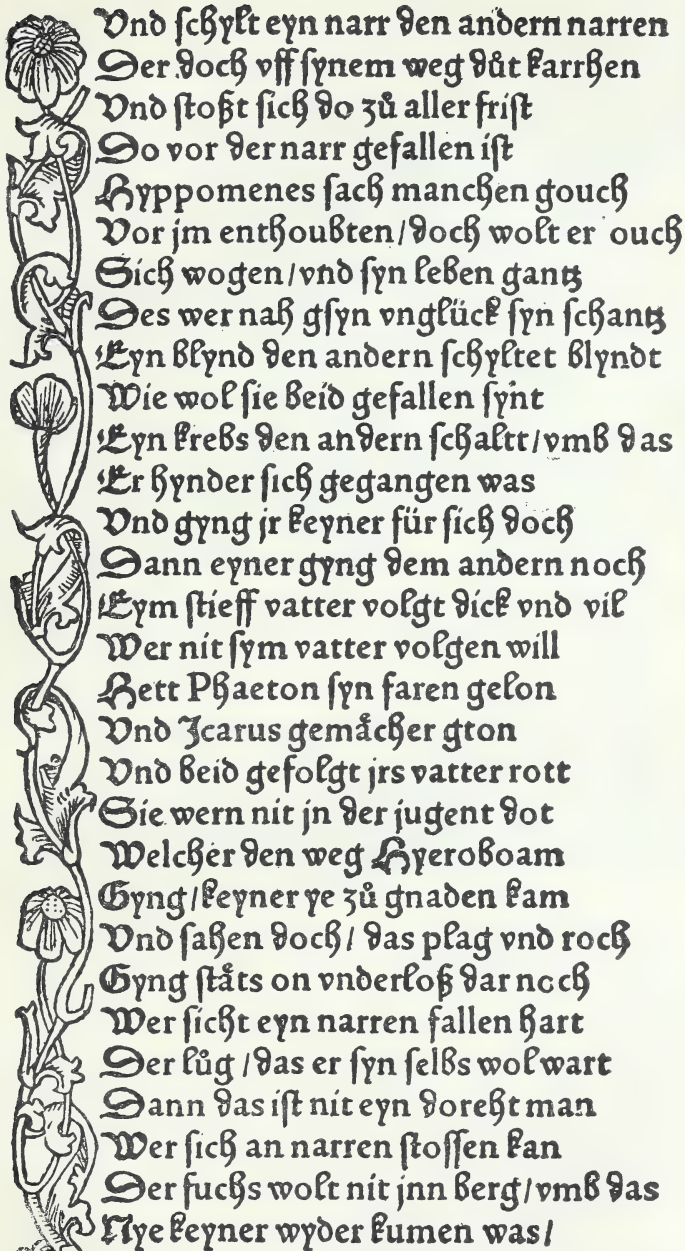 Vnd schylt eyn narr den andern narren
Der doch vff synem weg důt karrhen
Vnd stoßt sich do zů aller frist
Do vor der narr gefallen ist
Hyppomenes sach manchen gouch
Vor jm enthoubten / doch wolt er ouch
Sich wogen / vnd syn leben gantz
Des wer nah gsyn vnglück syn schantz
Eyn blynd den andern schyltet blyndt
Wie wol sie beid gefallen synt
Eyn krebs den andern schaltt / vmb das
Er hynder sich gegangen was
Vnd gyng jr keyner für sich doch
Dann eyner gyng dem andern noch
Eym stieff vatter volgt dick vnd vil
Wer nit sym vatter volgen will
Hett Phaeton syn faren gelon
Vnd Icarus gemåcher gton
Vnd beid gefolgt jrs vatter rott
Sie wern nit jn der jugent dot
Welcher den weg Hyeroboam
Gyng / keyner ye zů gnaden kam
Vnd sahen doch / das plag vnd roch
Gyng ståts on vnderloß dar noch
Wer sicht eyn narren fallen hart
Der lůg / das er syn selbs wol wart
Dann das ist nit eyn doreht man
Wer sich an narren stossen kan
Der fuchs wolt nit jnn berg / vmb das
Nye keyner wyder kumen was /